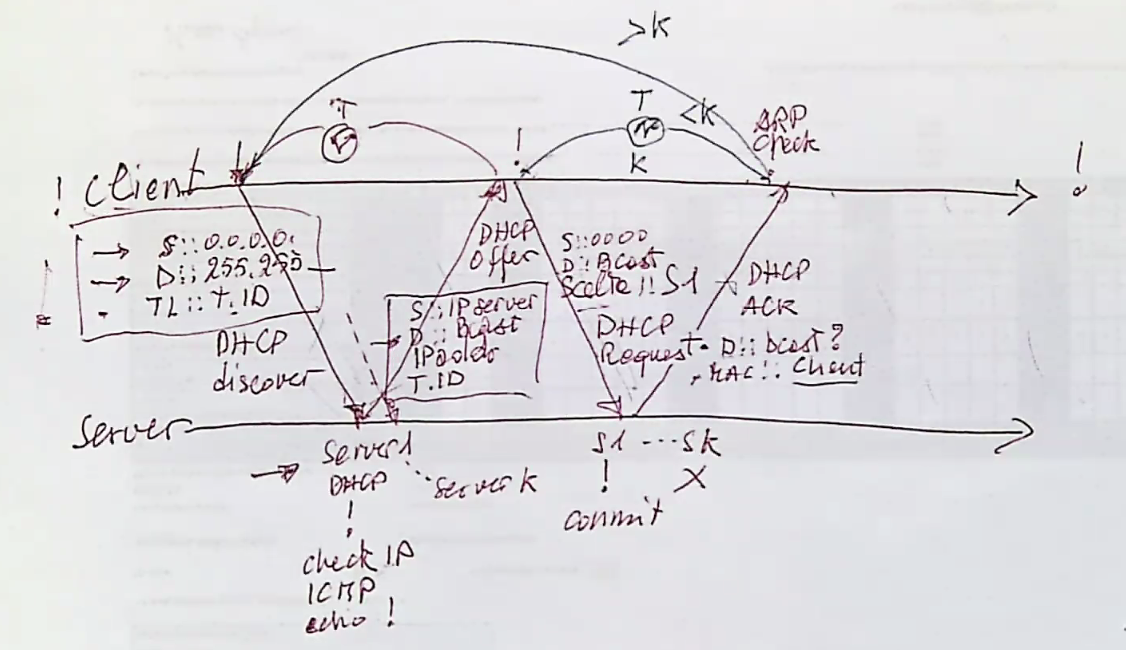 >K
T
T
<K
K
ARP
check
!
! Client
!
→ S::0.0.0.0.
→ D::255.255
TL::T.ID
DHCP
discover
DHCP
Offer
S::IP server
→ D::Bcast
IP addo
T.ID
S::0000
D::Bcast
Scelta!!S1
DHCP
Request
DHCP
ACK
D::bcast?
MAC!. Client
Server
→ Server1
DHCP
... Server k
!
check IP
ICMP
echo !
S1 ... Sk
! X
commit